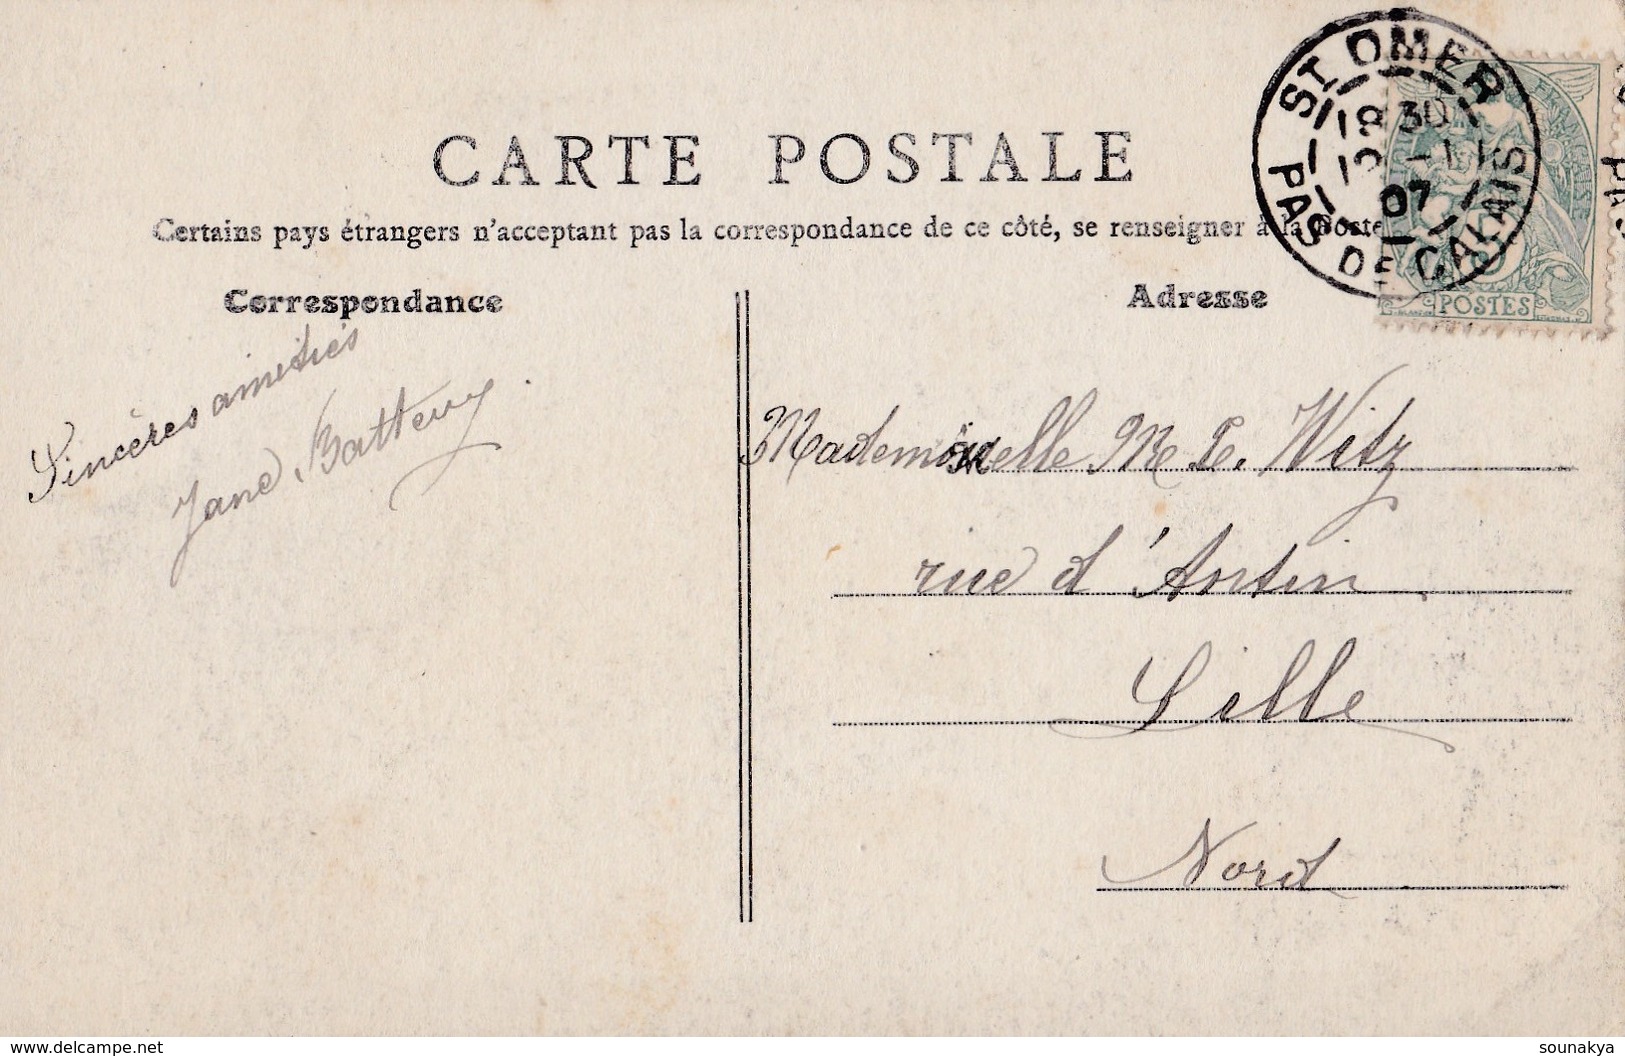 CARTE POSTALE
Certains pays étrangers n'acceptant pas la correspondance de ce côté, se renseigner à la Poste
Correspondance
Adresse
ST OMER
PAS DE CALAIS
30
07
POSTES
Sincères amitiés
Jane
Mademoiselle M E. Witz
rue d'Antin
Lille
Nord
www.delcampe.net
sounakya